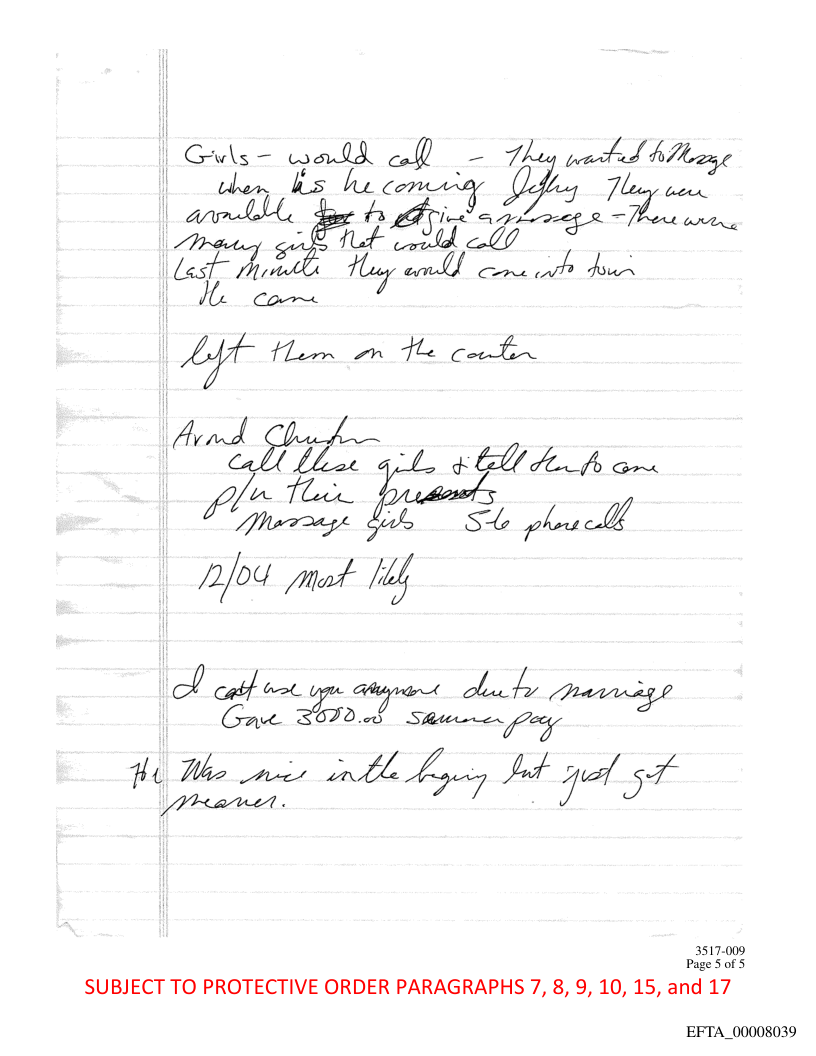 Girls – would call – They wanted to Massage
when is he coming Jeffrey They were
available to give a massage – There were
many girls that would call
Last Minute they would come into town
He came
left them on the counter
Around
call these girls & tell them to come
p/u their presents
Massage girls 5-6 phone calls
12/04 most likely
I can't use you anymore due to marriage
Gave 3000.00 summer pay
He Was nice in the begining but just got
meaner.
3517-009
Page 5 of 5
SUBJECT TO PROTECTIVE ORDER PARAGRAPHS 7, 8, 9, 10, 15, and 17
EFTA_00008039